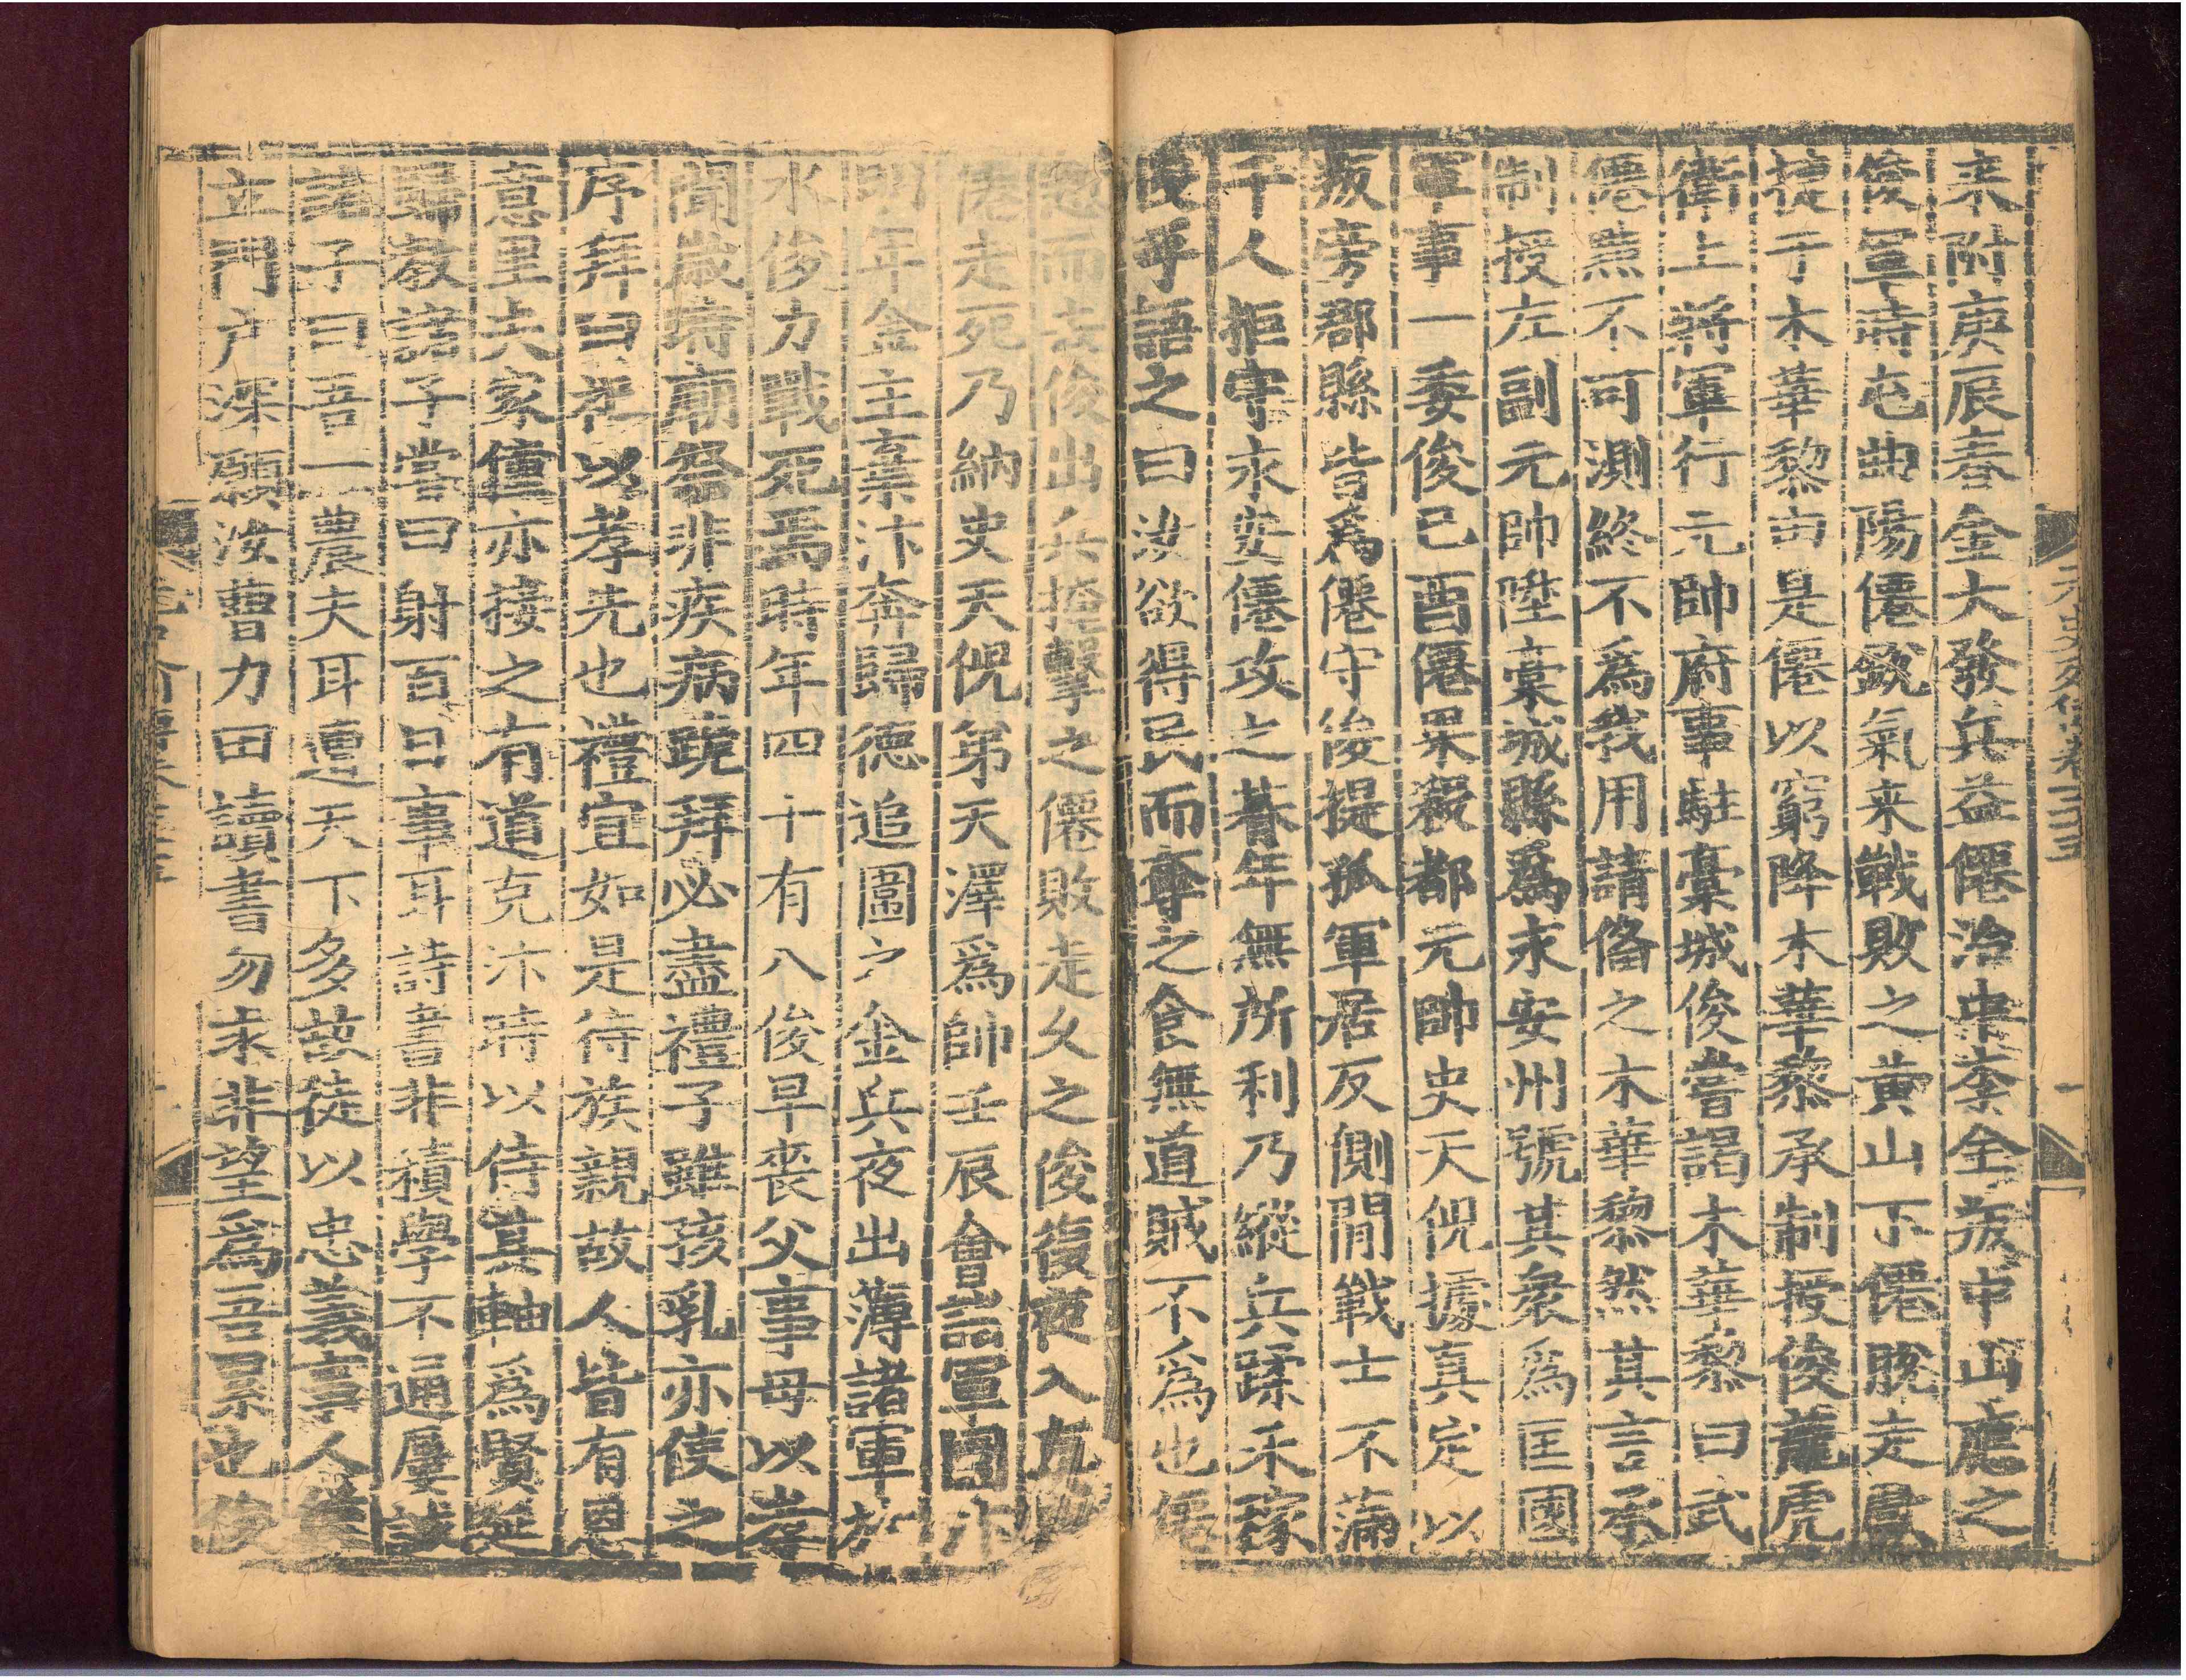 来附庚辰春金大發兵益僊治中李全叛中山應之
俊軍時屯曲陽僊銳氣来戰敗之黄山下僊脫走獻
捷于木華黎由是僊以窮降木華黎承制授俊龍虎
衛上將軍行元帥府事駐藁城俊嘗謁木華黎曰武
僊黠不可測終不爲我用請俻之木華黎然其言承
制授左副元帥陞藁城縣爲永安州號其衆爲匡國
軍事一委俊己酉僊果殺都元帥史天倪據真定以
叛旁郡縣皆爲僊守俊提孤軍居反側間戰士不滿
千人拒守永安僊攻之朞年無所利乃縱兵蹂禾稼
俊呼語之曰汝欲得民而奪之食無道賊不爲也僊
慙而去俊出兵掩擊之僊敗走久之俊復夜入真定
僊走死乃納史天倪弟天澤爲帥壬辰會諸軍圍汴
明年金主棄汴奔歸德追圍之金兵夜出薄諸軍於
水俊力戰死焉時年四十有八俊早喪父事母以孝
聞歲時廟祭非疾病跪拜必盡禮子雖孩乳亦使之
序拜曰祀以孝先也禮宜如是待族親故人皆有恩
意里夫家僮亦接之有道克汴時以侍其軸爲賢延
歸教諸子嘗曰射百日事耳詩書非積學不通屢誡
諸子曰吾一農夫耳遭天下多故徒以忠義事人僅
立門户深願汝曹力田讀書勿求非望爲吾累也俊
元史列傳卷三十五
一